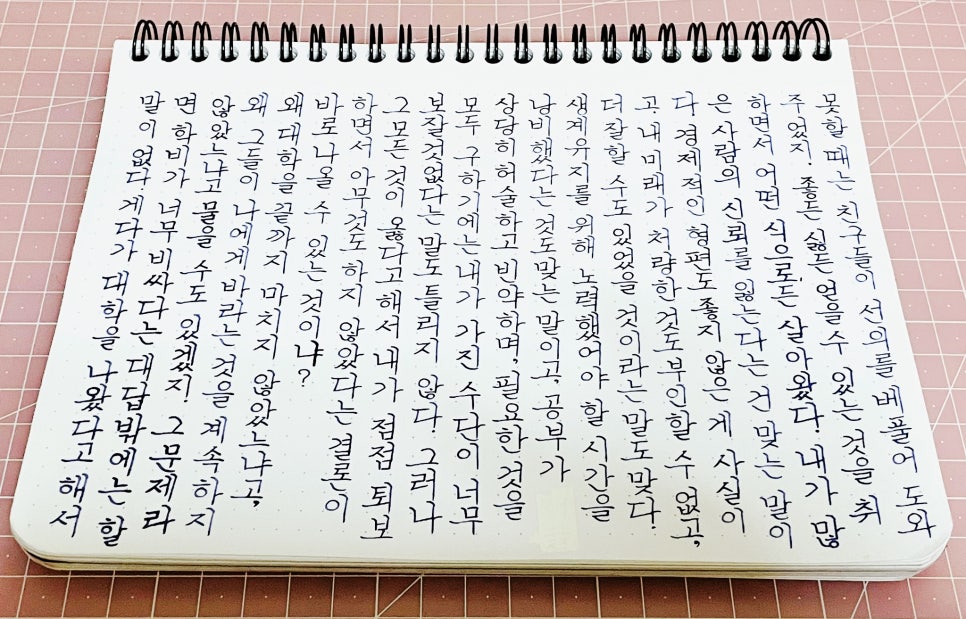 못할 때는 친구들이 서의를 베풀어 도와
주었지. 좋든 싫든 얻을 수 있는 것을 취
하면서 어떤 식으로든 살아왔다. 내가 많
은 사람의 신뢰를 잃는다는 건 맞는 말이
다. 경제적인 형편도 좋지 않은 게 사실이
고, 내 미래가 처량한 것도 부인할 수 없고,
더 잘할 수도 있었을 것이라는 말도 맞다.
생계유지를 위해 노력했어야 할 시간을
낭비했다는 것도 맞는 말이고, 공부가
상당히 허술하고 빈약하며, 필요한 것을
모두 구하기에는 내가 가진 수단이 너무
보잘것없다는 말도 틀리지 않다. 그러나
그 모든 것이 옳다고 해서 내가 점점 퇴보
하면서 아무것도 하지 않았다는 결론이
바로 나올 수 있는 것이냐?
왜 대학을 끝까지 마치지 않았느냐고,
왜 그들이 나에게 바라는 것을 계속하지
않았느냐고 물을 수도 있겠지! 그 문제라
면 학비가 너무 비싸다는 대답밖에는 할
말이 없다. 게다가 대학을 나왔다고 해서